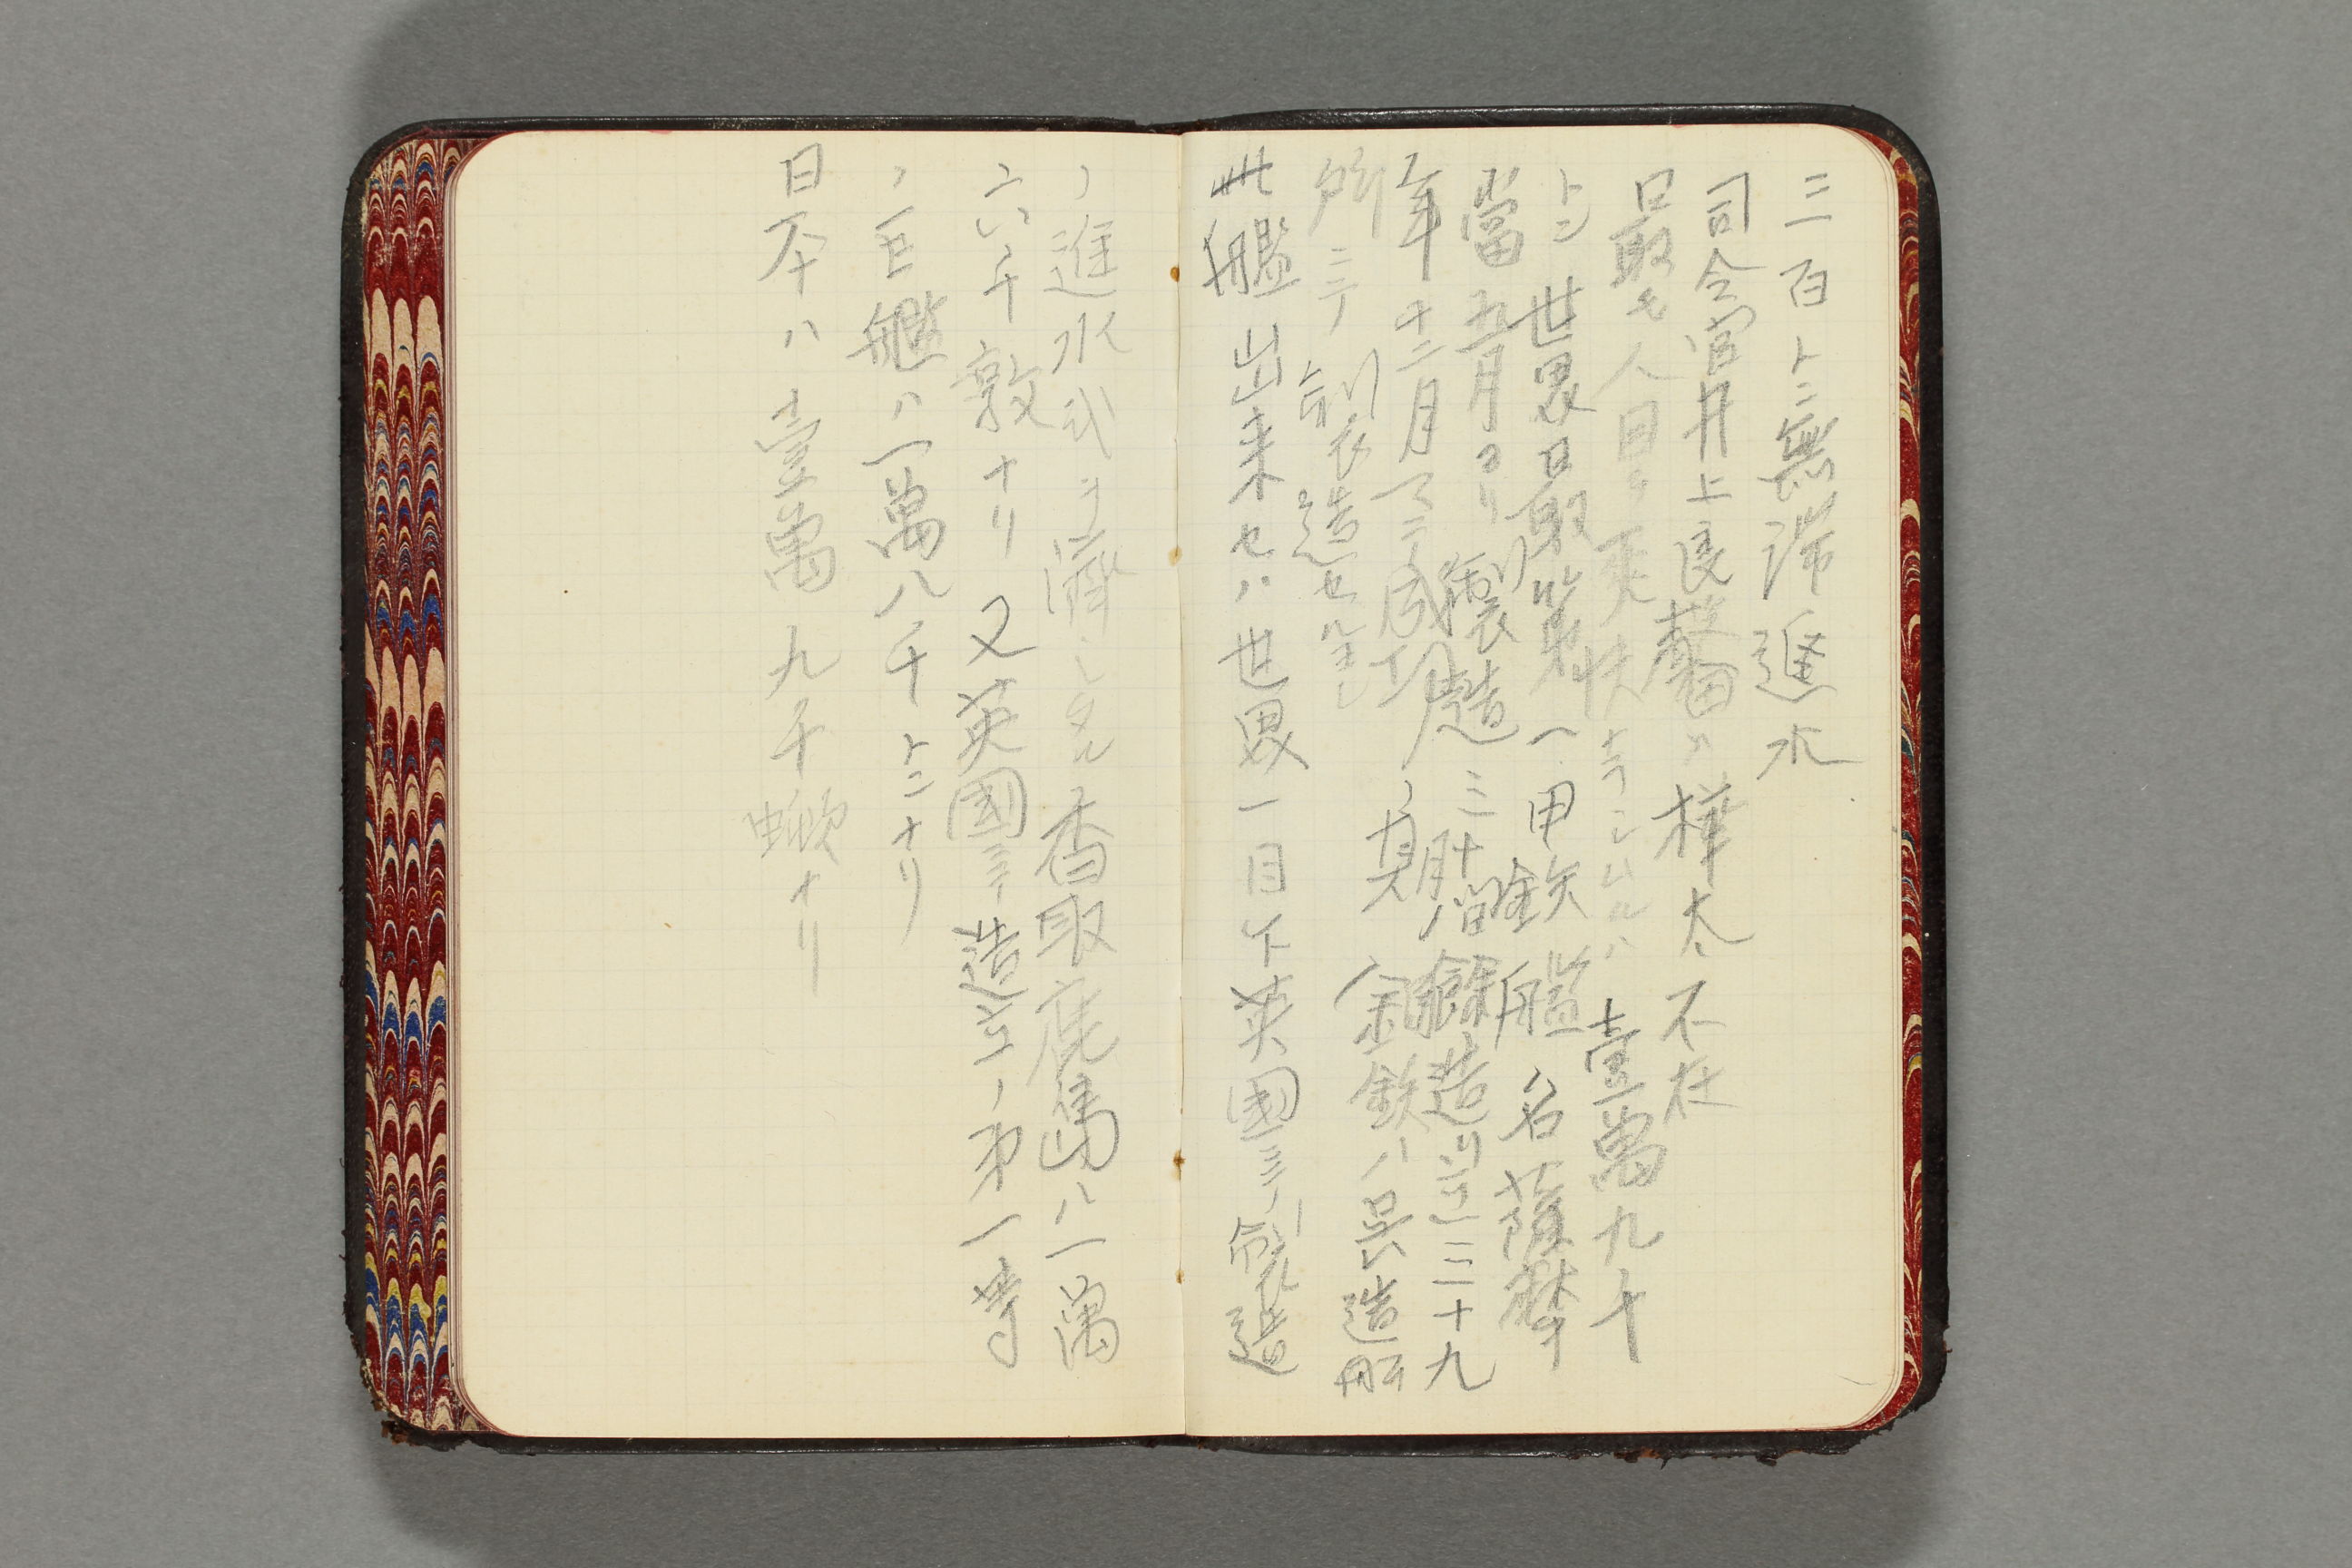 三百トン無滞進水
司令官井上良馨ハ樺太不在
最モ人目ヲ爽快ナラシムルハ壹萬九千
トン世界日最第一甲鉄艦名薩摩
當五月ヨリ製造三十ヶ月間餘造リ三十九
年十二月マテ成功ノ見 金鉄ハ呉造船
所ニテ製造セルモノ
此艦出来セハ世界一目下英國ニテ製造
ノ進水式ヲ濟シタル香取鹿島ハ一萬
六千敦ナリ又英國ニテ造立ノ第一等
ノ巨艦ハ一萬八千トンナリ
日本ハ壹萬九千噸ナリ